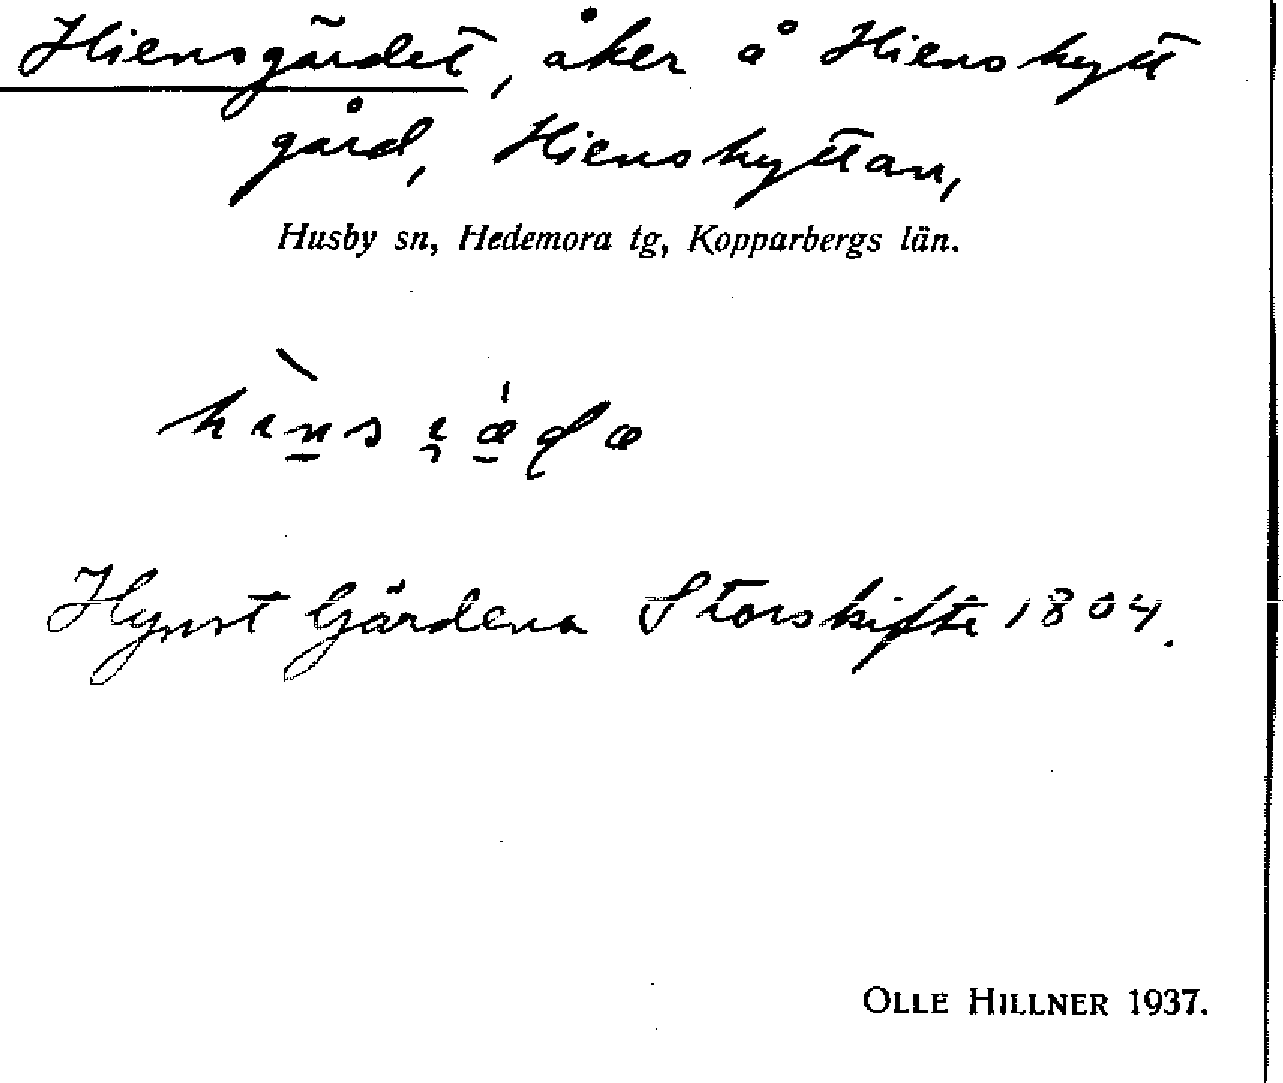 Hiensgärdet, åker å Hienshytt
gård, Hienshyttan,
Husby sn, Hedemora tg, Kopparbergs län.
Hynst Gärdena Storskifte 1804.
OLLE HILLNER 1937.